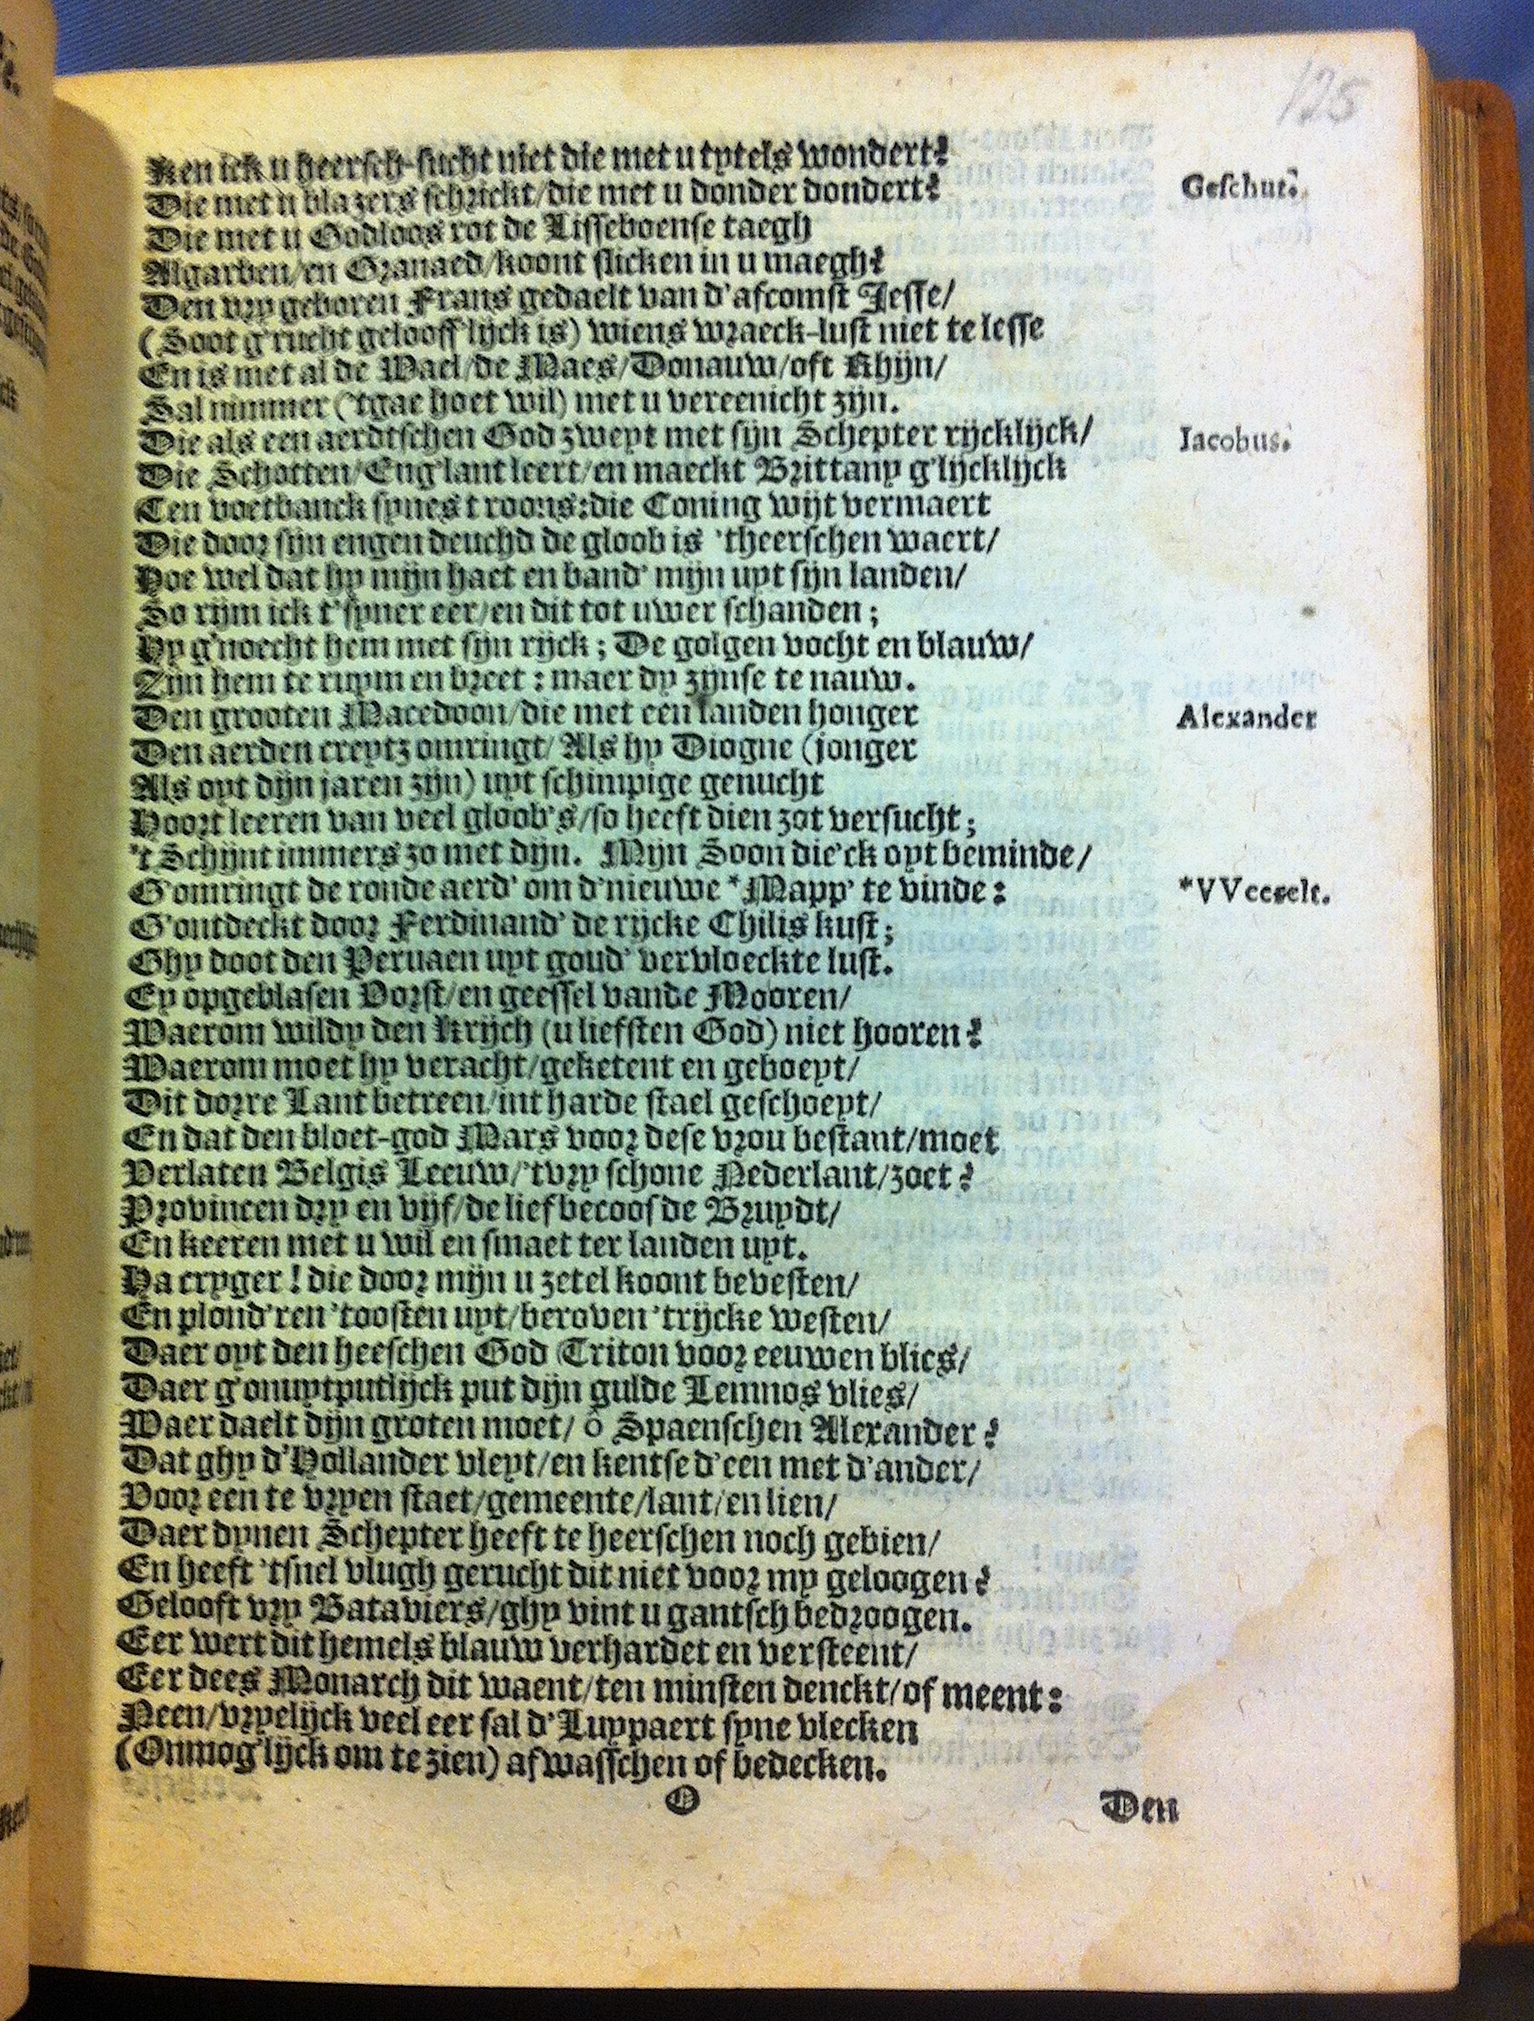 125
Ken ick u heersch-sucht niet die met u tytels wondert?
Die met u blazers schrickt/die met u donder dondert? Geschut.
Die met u Godloos rot de Lisseboense taegh
Algarben/en Granaed/koont slicken in u maegh?
Den vry geboren Frans gedaelt van d'afcomst Jesse/
(Soot g'rucht gelooff'lijck is) wiens wraeck-lust niet te lesse
En is met al de Wael/de Maes/Donauw/oft Rhijn/
Sal nimmer ('tgae hoet wil) met u vereenicht zijn.
Die als een aerdtschen God zweyt met sijn Schepter rijcklijck/ Iacobus.
Die Schotten/Eng'lant leert/en maeckt Brittany g'lijcklijck
Ten voetbanck synes troons:die Coning wijt vermaert
Die door sijn engen deuchd de gloob is 'theerschen waert/
Hoe wel dat hy mijn haet en band' mijn uyt sijn landen/
So rijm ick t'syner eer/en dit tot uwer schanden;
Hy g'noecht hem met sijn rijck; De golgen vocht en blauw/
Zijn hem te ruym en breet : maer dy zijnse te nauw.
Den grooten Macedoon/die met een landen honger Alexander
Den aerden creytz omringt/Als hy Diogne (jonger
Als oyt dijn jaren zijn) uyt schimpige genucht
Hoort leeren van veel gloob's/so heeft dien zot versucht;
't Schijnt immers zo met dijn. Mijn Soon die'ck oyt beminde/
G'omringt de ronde aerd' om d'nieuwe *Mapp' te vinde: *VVeereelt.
G'ontdeckt door Ferdinand' de rijcke Chilis kust;
Ghy doot den Peruaen uyt goud' vervloeckte lust.
Ey opgeblasen Vorst/en geessel vande Mooren/
Waerom wildy den Krijch (u liefsten God) niet hooren?
Waerom moet hy veracht/geketent en geboeyt/
Dit dorre Lant betreen/int harde stael geschoeyt/
En dat den bloet-god Mars voor dese vrou bestant/moet
Verlaten Belgis Leeuw/'tvry schone Nederlant/zoet?
Provincen dry en vijf/de lief becoosde Bruydt/
En keeren met u wil en smaet ter landen uyt.
Ha cryger! die door mijn u zetel koont bevesten/
En plond'ren 'toosten uyt/beroven 'trijcke westen/
Daer oyt den heeschen God Triton voor eeuwen blies/
Daer g'onuytputlijck put dijn gulde Lemnos vlies/
Waer daelt dijn groten moet/ ô Spaenschen Alexander?
Dat ghy d'Hollander vleyt/en kentse d'een met d'ander/
Voor een te vryen staet/gemeente/lant/en lien/
Daer dynen Schepter heeft te heerschen noch gebien/
En heeft 'tsnel vlugh gerucht dit niet voor my geloogen?
Gelooft vry Bataviers/ghy vint u gantsch bedroogen.
Eer wert dit hemels blauw verhardet en versteent/
Eer dees Monarch dit waent/ten minsten denckt/of meent:
Neen/vryelijck veel eer sal d'Luypaert syne vlecken
(Onmog'lijck om te zien) afwasschen of bedecken.
O Den